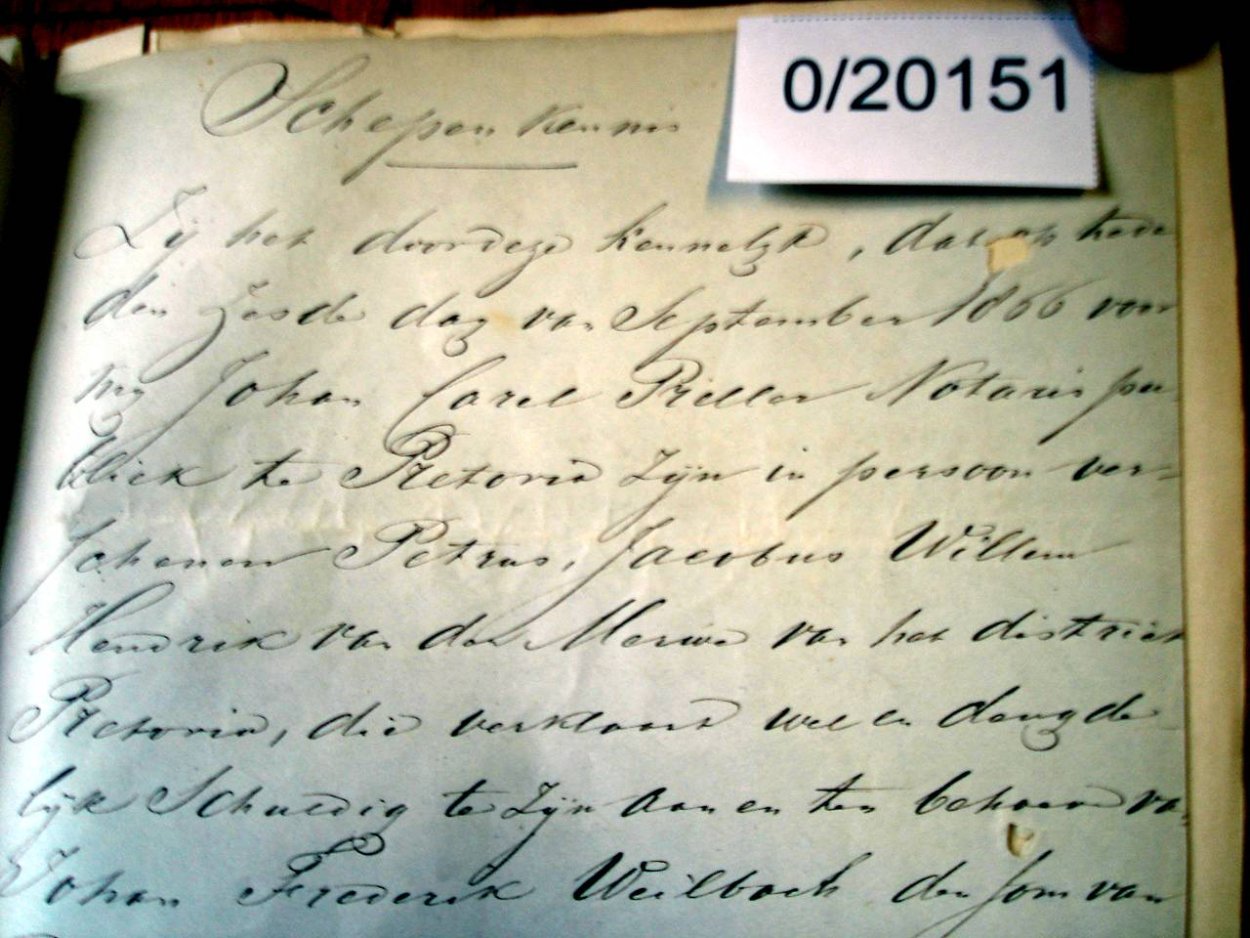 0/20151
Schepen Kennis
Zij het door deze kennelyk, dat op hede
den Zesde dag van September 1866 voor
my Johan Carel Preller Notaris pu
bliek te Pretoria Zijn in persoon ver-
schenen Petrus, Jacobus Willem
Hendrik van der Merwe van het district
Pretoria, die verklaard wel en deugde
lijk Schuldig te Zijn aan en ten behoeve van
Johan Frederik Weilbach den Som van